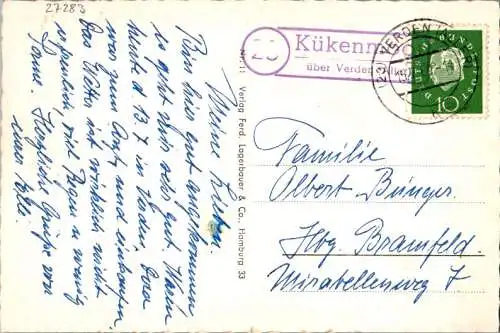 27283
Meine Lieben.
Bin hier gut angekommen
es geht mir sehr gut. Waren
heute d. 13.7 in Verden. Dora
wegen Arzt und einkaufen
Das Wetter ist wirklich nicht
erfreulich, viel Regen u. wenig
Sonne. Herzliche Grüße von
eurer
Nr. 11 Verlag Ferd. Lagerbauer & Co., Hamburg 33
23
Kükenm
über Verden
(23) VERDEN
DEUTSCHE BUNDESPOST
10
Familie
Albert Bünger.
Hbg. Bramfeld.
Mirabellenweg 7